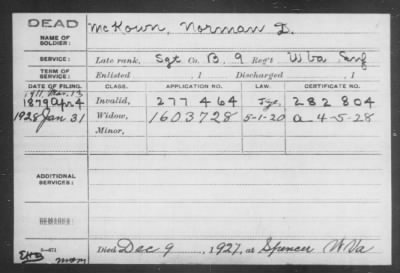 DEAD
NAME OF SOLDIER: McKown, Norman D.
SERVICE: Late rank, Sgt Co. B, 9 Reg't W Va Inf
TERM OF SERVICE: Enlisted , 1 Discharged , 1
DATE OF FILING. CLASS. APPLICATION NO. LAW. CERTIFICATE NO.
1911 Mar. 13
1879 Apr 4 Invalid, 277464 282804
1928 Jan 31 Widow, 1603728 5-1-20 a-4-5-28
Minor,
ADDITIONAL SERVICES:
REMARKS:
Died Dec 9, 1927, at Spencer W Va